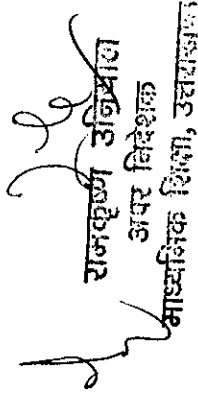 रामकृष्ण उनियाल
अपर निदेशक
माध्यमिक शिक्षा, उत्तराखण्ड